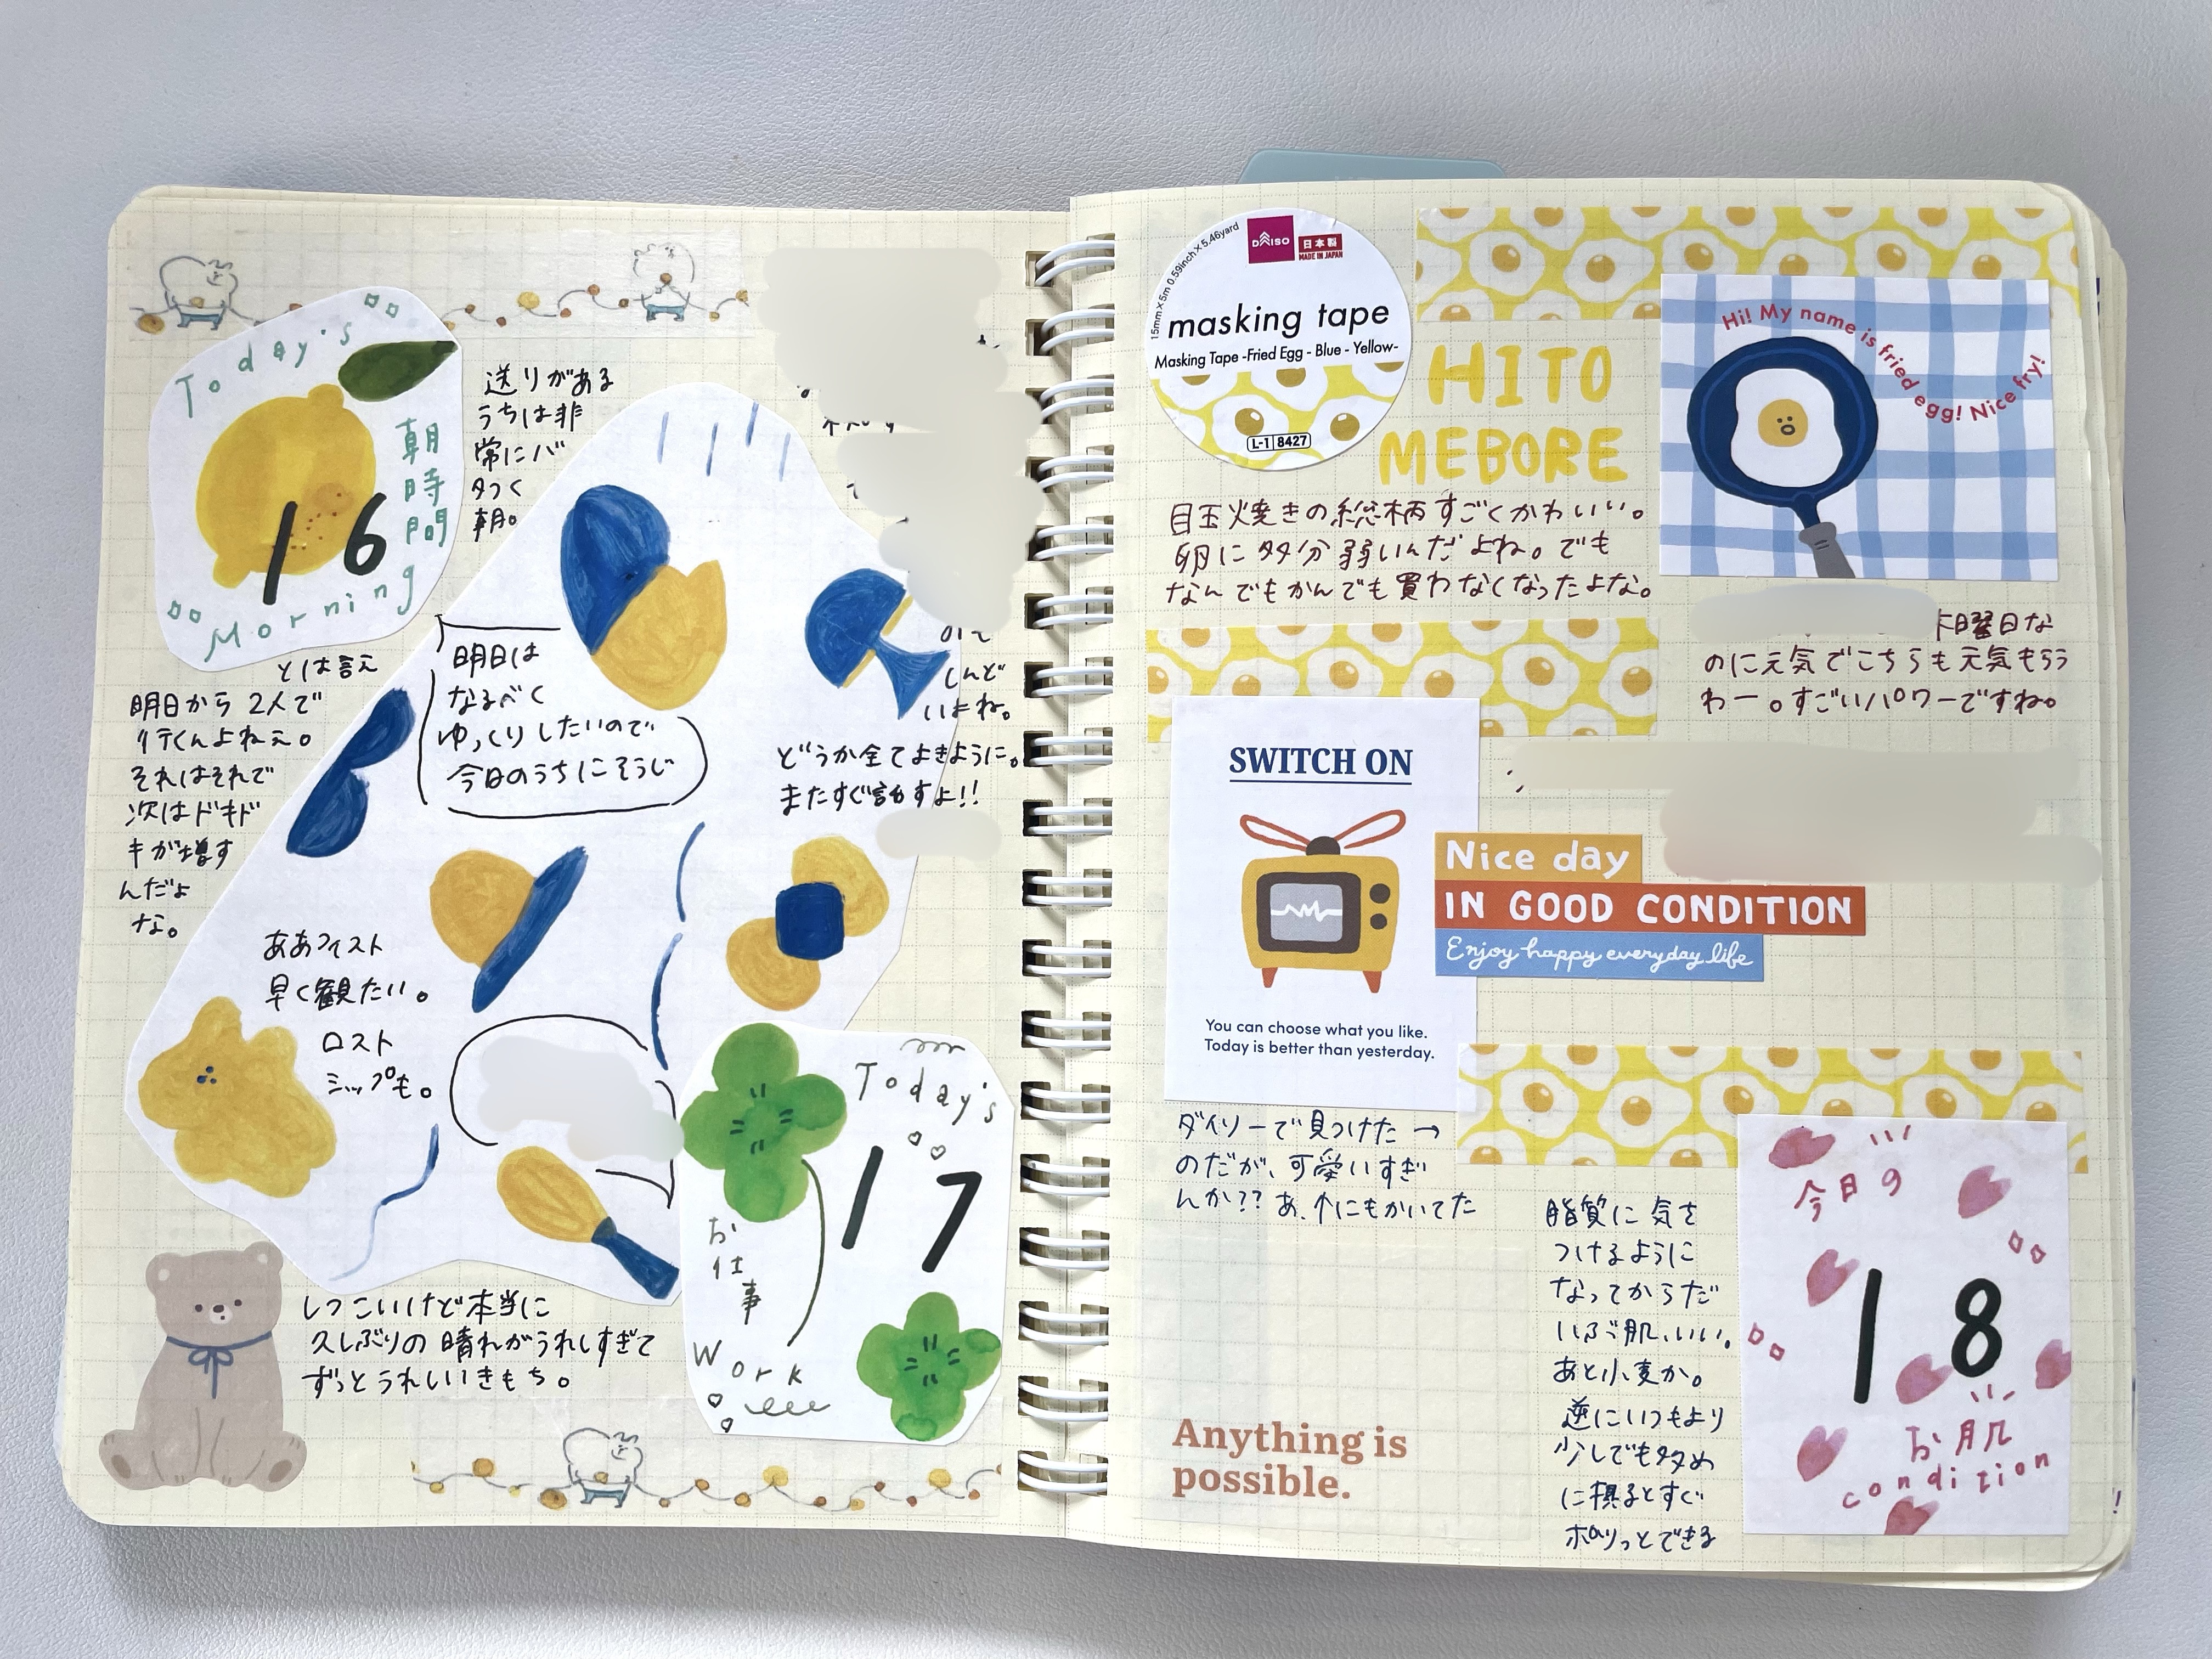 Today's
朝
時
間
16
Morning
送りがある
うちは非
常にバ
タつく
朝。
とは言え
明日から2人で
行くんよねえ。
それはそれで
次はドキド
キが増す
んだよ
な。
明日は
なるべく
ゆっくりしたいので
今日のうちにそうじ
しんど
いよね。
どうか全てよきように。
またすぐ話すよ!!
ああツイスト
早く観たい。
ロスト
ミップも。
Today's
17
お
仕
事
Work
しつこいけど本当に
久しぶりの晴れがうれしすぎて
ずっとうれしいきもち。
DAISO
日本製
MADE IN JAPAN
15mm×5m 0.59inch×5.46yard
masking tape
Masking Tape -Fried Egg - Blue - Yellow-
L-1 8427
HITO
MEBORE
Hi! My name is fried egg! Nice fry!
目玉焼きの総柄すごくかわいい。
卵に多分弱いんだよね。でも
なんでもかんでも買わなくなったよな。
曜日な
のに元気でこちらも元気もらう
わー。すごいパワーですね。
SWITCH ON
You can choose what you like.
Today is better than yesterday.
Nice day
IN GOOD CONDITION
Enjoy happy everyday life
ダイソーで見つけた→
のだが、可愛いすぎ
んか?? あ、↑にもかいてた
脂質に気を
つけるように
なってからだ
いぶ肌、いい。
あと小麦か。
逆にいつもより
少しでも多め
に摂るとすぐ
ポツっとできる
今日の
18
お肌
condition
Anything is
possible.